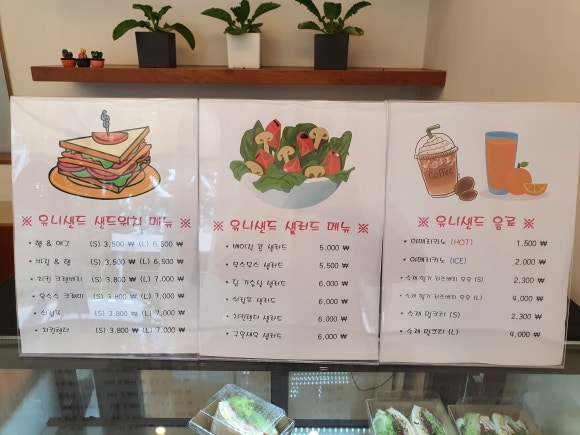 ※ 유니샌드 샌드위치 메뉴 ※
• 햄 & 에그 (S) 3,500 ₩ (L) 6,500 ₩
• 베지 & 햄 (S) 3,500 ₩ (L) 6,500 ₩
• 치킨 크랜베리 (S) 3,800 ₩ (L) 7,000 ₩
• 크래미 (S) 3,800 ₩ (L) 7,000 ₩
• 쉬림프 (S) 3,800 ₩ (L) 7,000 ₩
• 치킨텐더 (S) 3,800 ₩ (L) 7,000 ₩
※ 유니샌드 샐러드 메뉴 ※
• 베이직 콥 샐러드 5,000 ₩
• 샐러드 5,500 ₩
• 닭 가슴살 샐러드 6,000 ₩
• 쉬림프 샐러드 6,000 ₩
• 치킨텐더 샐러드 6,000 ₩
• 샐러드 6,000 ₩
※ 유니샌드 음료 ※
• 아메리카노 (HOT) 1,500 ₩
• 아메리카노 (ICE) 2,000 ₩
• 수제 딸기 우유 (S) 2,300 ₩
• 수제 딸기 우유 (L) 4,000 ₩
• 수제 밀크티 (S) 2,300 ₩
• 수제 밀크티 (L) 4,000 ₩
Coffee